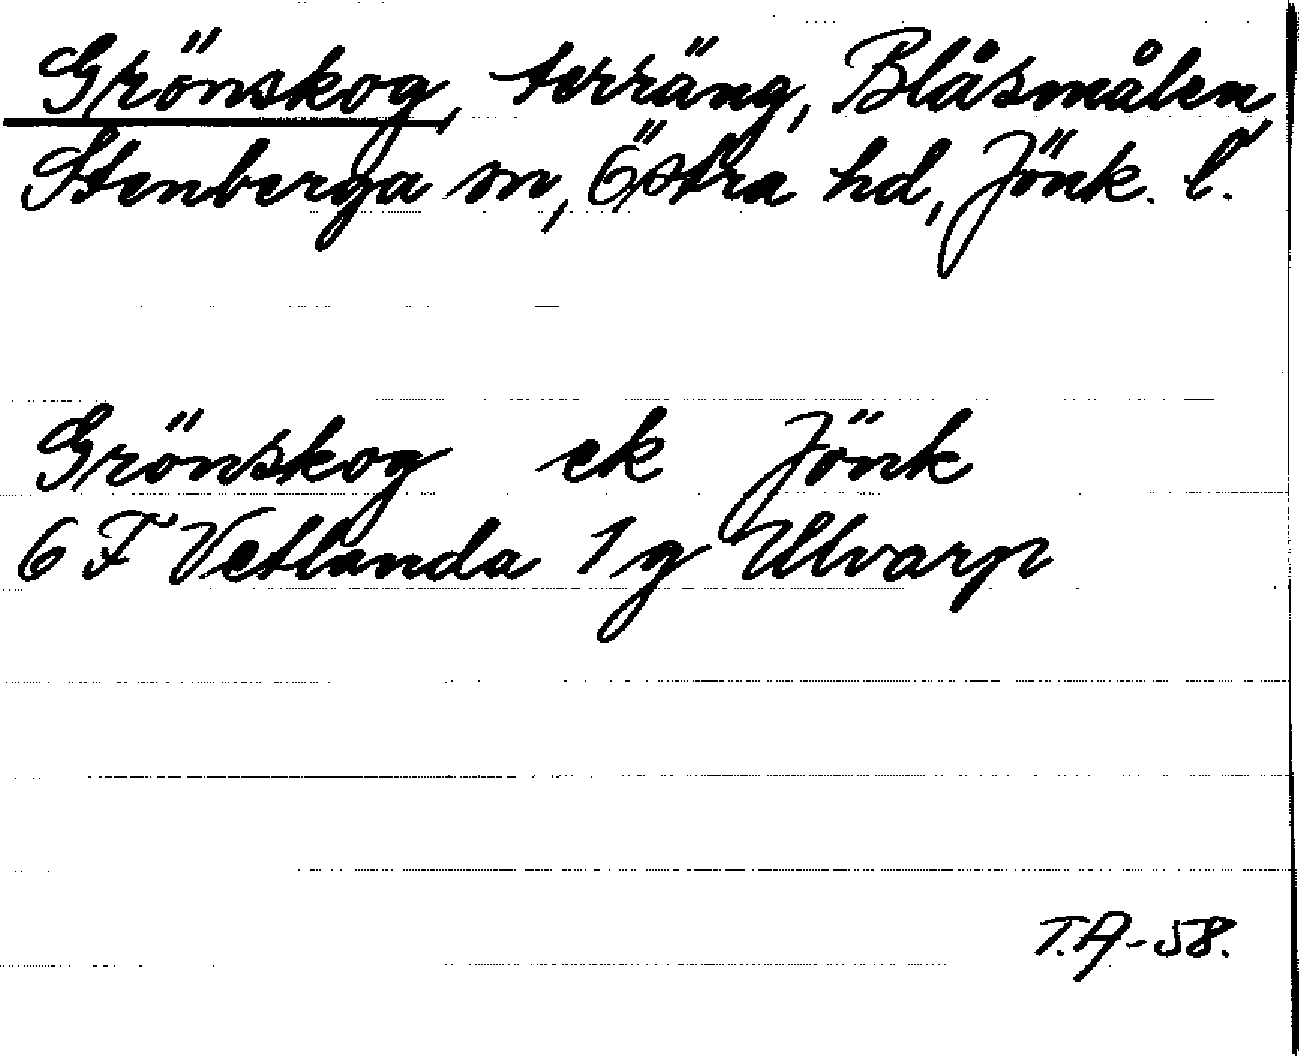 Grönskog, terräng, Blåsmålen,
Stenberga sn, Östra hd, Jönk. l.
Grönskog ek Jönk
6 F Vetlanda 1 g Ulvarp
T.A-58.